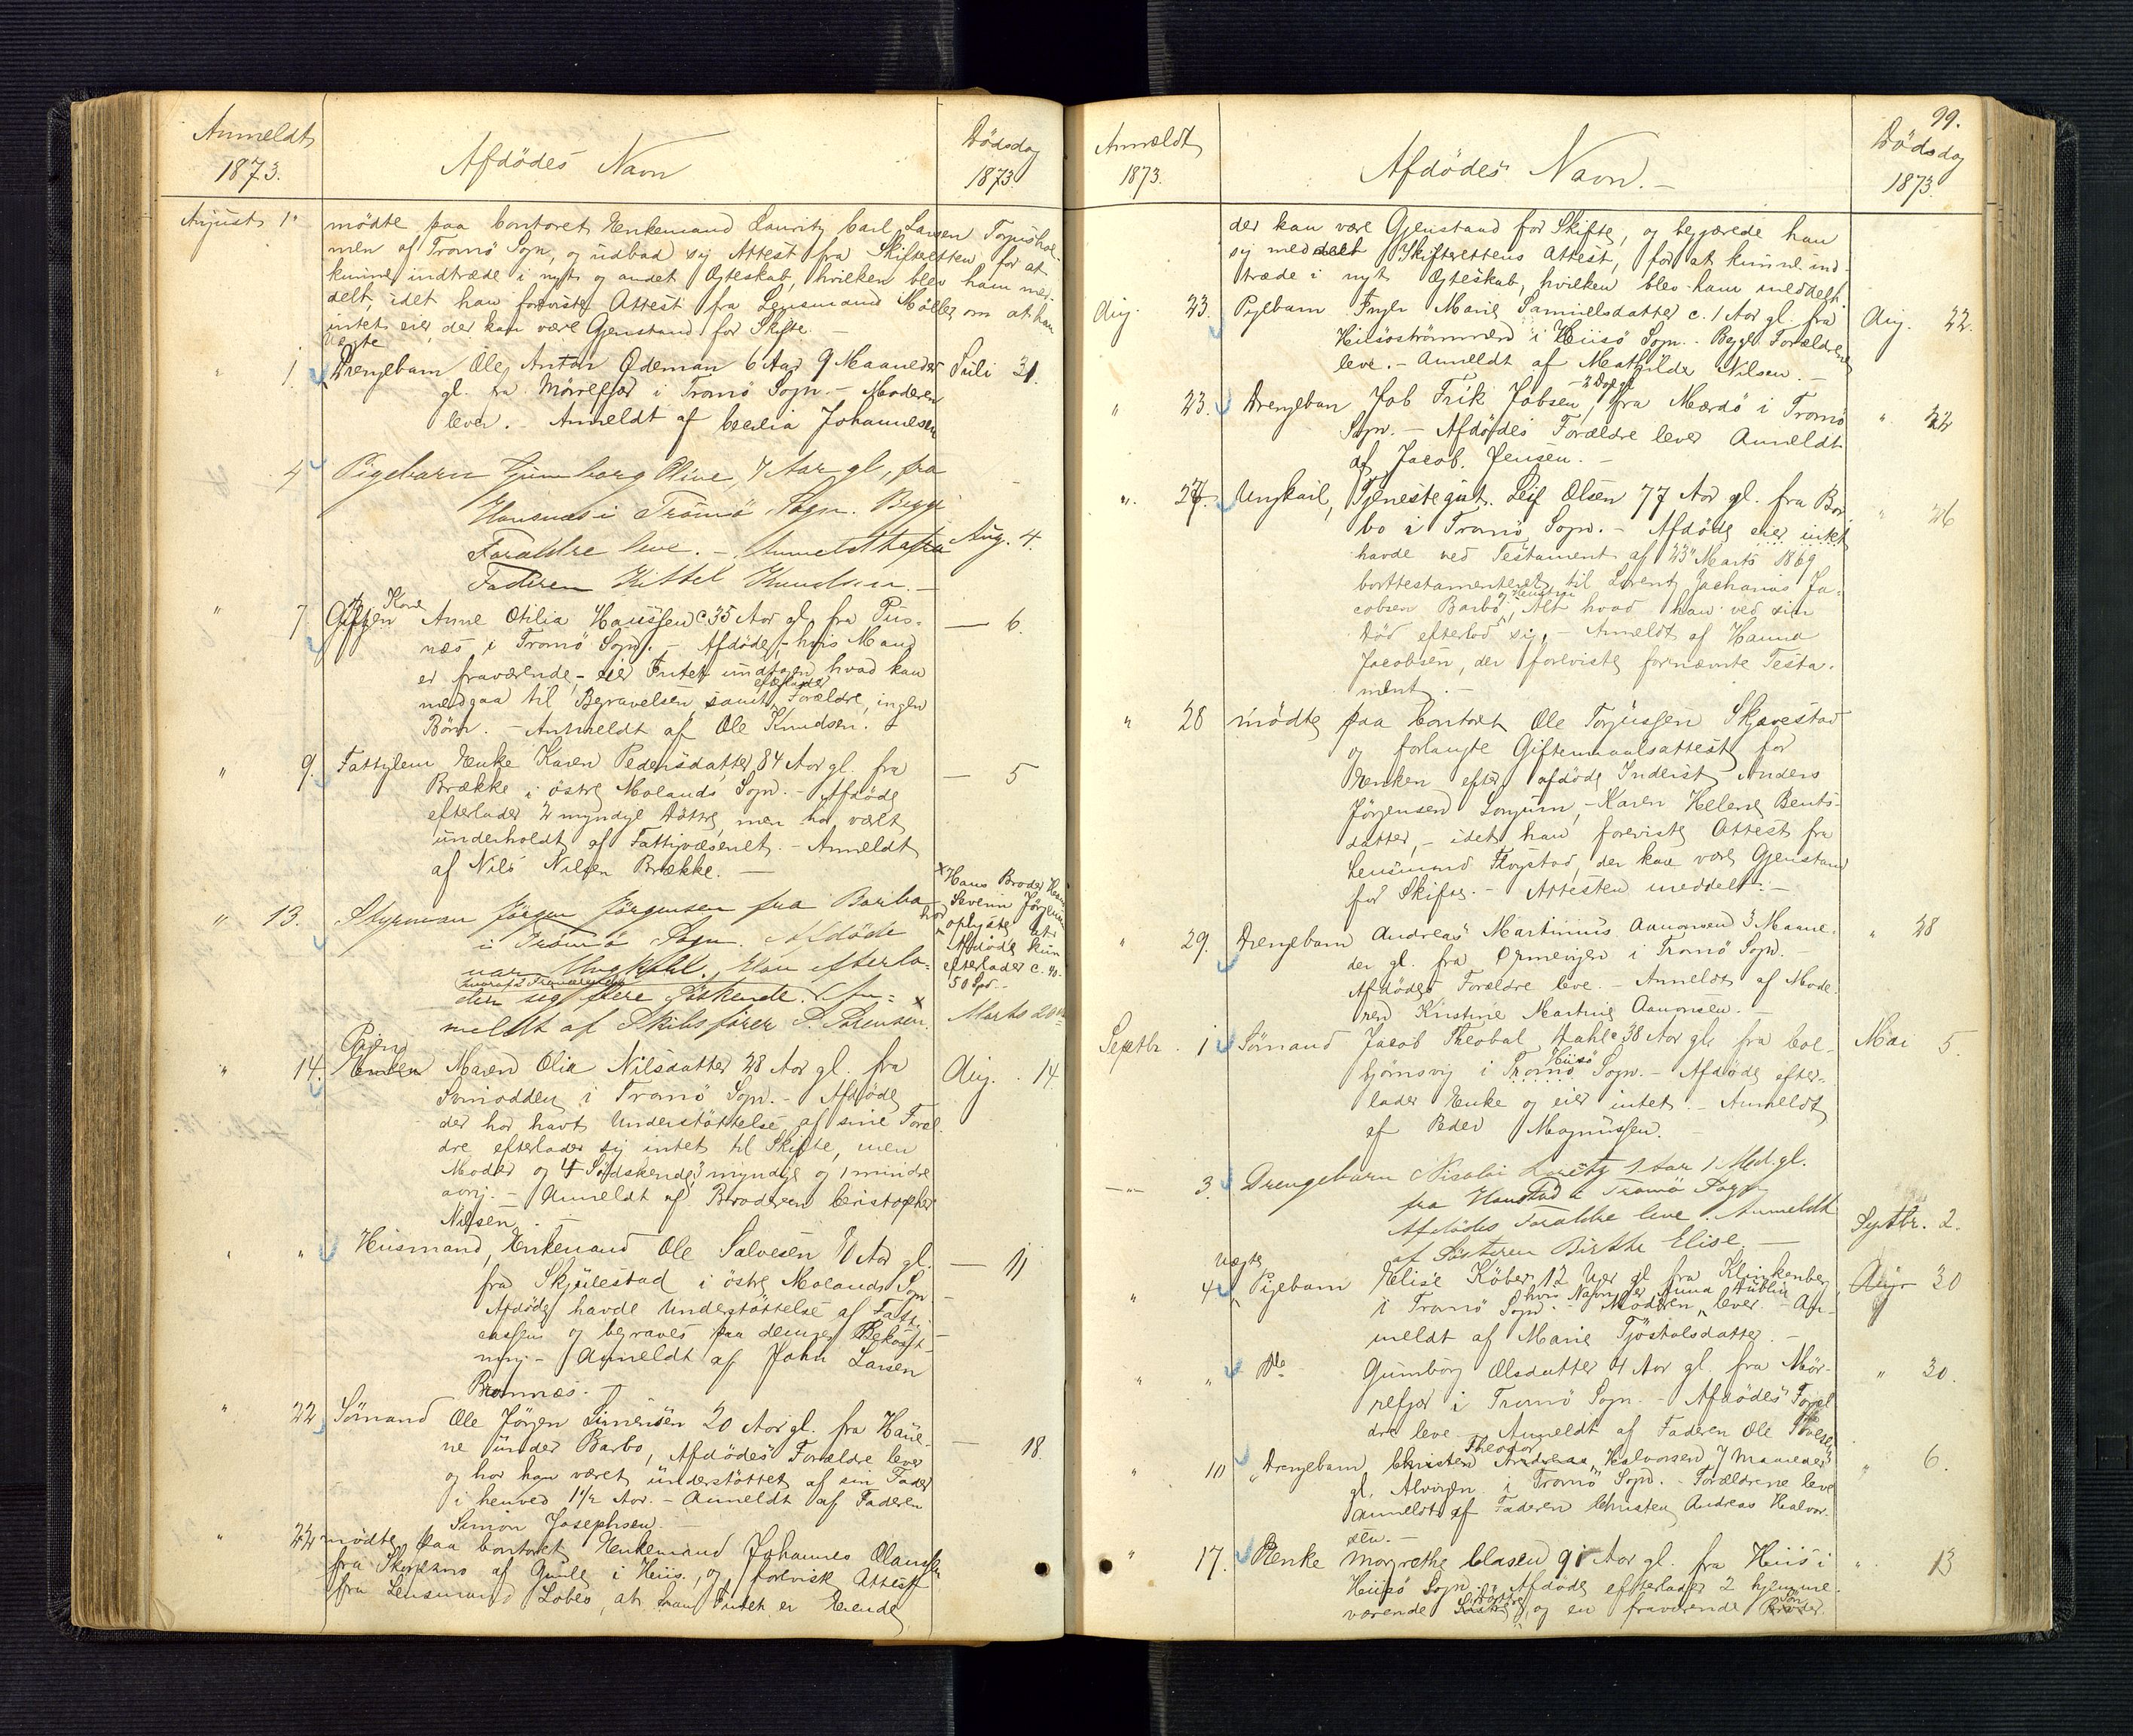 Anmeldt
1873.
Afdödes Navn
Dödsdag
1873
August 1"
mödte paa Contoret Enkemand Lauritz Carl Larsen Torjushol-
men af Tromö Sogn, og udbad sig Attest fra Skifteretten for at
kunne indtræde i nyt og andet Egteskab, hvilken blev ham med-
delt, idet han foreviste Attest fra Lensmand Möller om at han
intet eier, der kan være Gjenstand for Skifte. –
uegte
" 1. Drengebarn Ole Anton Ödeman 6 Aar 9 Maaneder Juli 31.
gl. fra Mörrefjær i Tromö Sogn. – Moderen
lever. – Anmeldt af Cecilia Johannesen
4 Pigebarn Gunborg Oline, 7 Aar gl., fra
Hansnæs i Tromö Sogn. Begge
Forældre leve. – Anmeldt af Aug. 4.
Faderen Kittel Knudsen. –
" 7 Kone Anne Otilia Hanssen c 35 Aar gl. fra Pus- — 6.
næs i Tromö Sogn. – Afdöde, – hvis Mand
er fraværende, – eier Intet undtagen hvad kan
medgaa til Begravelsen, samt efterlader Forældre, ingen
Börn. – Anmeldt af Ole Knudsen. –
" 9. Fattiglem Enke Karen Pedersdatter 84 Aar gl. fra — 5
Brække i östre Molands Sogn. – Afdöde
efterlader 2 myndige Döttre, men har været
underholdt af Fattigvæsenet. – Anmeldt
af Nils Nilsen Brække. –
" 13. Styrman Jörgen Jörgensen fra Barbo
i Tromö Sogn. Afdöde
var Ungkarl. Han efterla-
hvoraf 2 Fraværende
der sig flere Söskende. An- x
meldt af Skibsförer S. Sörensen. Marts 20
x Hans Broder
Severin Jörgensen
oplyste at
Afdöde kun
efterlader c. 40-
50 Spd. –
Pigen
" 14. Enken Maren Olia Nilsdatter 28 Aar gl. fra Aug. 14.
Songodden i Tromö Sogn. – Afdöde
der har havt Understöttelse af sine Foræl-
dre efterlader sig intet til Skifte, men
Moder og 4 Södskende, 3 myndige og 1 mindre
aarig. – Anmeldt af Broderen Cristopher
Nilsen.
" " Husmand, Enkemand Ole Salvesen 80 Aar gl. — 11
fra Skjulestad i östre Molands Sogn
Afdöde havde Understöttelse af Fattig-
cassen og begraves paa dennes Bekost-
ning – Anmeldt af John Larsen
Bromnæs. –
" 22 Sömand Ole Jörgen Simensen 20 Aar gl. fra Haue-
ne under Barbo, Afdödes Forældre lever — 18.
og har han været understöttet af sin Fader
i henved 1½ Aar. – Anmeldt af Faderen
Simon Josephsen.
" 22 mödte paa Contoret Enkemand Johannes Olaussen
fra af i Hiis, og foreviste Attest
fra Lensmand Löbes, at han Intet er Eiende
99.
Anmeldt
1873.
Afdödes Navn. –
Dödsdag
1873
der kan være Gjenstand for Skifte, og begjærede han
sig meddelt Skifterettens Attest, for at kunne ind-
træde i nyt Egteskab, hvilken blev ham meddelt.
Aug. 23. Pigebarn Inger Marie Samuelsdatter c. 1 Aar gl. fra Aug. 22.
i Hiisö Sogn. – Begge Forældrene
leve. – Anmeldt af Mathilde Nilsen. –
2 Dage gl.
" 23. Drengebarn Job Frik Jobsen, fra Mærdö i Tromö " 22
Sogn. – Afdödes Forældre lever Anmeldt
af Jacob Jensen. –
" 27. Ungkarl, Tjenestegut Leif Olsen 77 Aar gl. fra Bar- " 26
bo i Tromö Sogn. – Afdöde eier intet
havde ved Testament af 23" Marts 1869
borttestamenteret til Lorentz Zacharias Ja-
cobsen Barbo og Hustru, Alt hvad han ved sin
Död efterlod sig. – Anmeldt af Hanna
Jacobsen, der foreviste fornævnte Testa-
ment. –
" 28 mödte paa Contoret Ole Torjussen Skjævestad
og forlangte Giftermaalsattest for
Enken efter afdöde Inderst Anders
Jörgensen Longum, – Karen Helene Bents-
datter, – idet han foreviste Attest fra
Lensmand Flogstad, der kan være Gjenstand
for Skifte. – Attesten meddelt. –
" 29. Drengebarn Andreas Martinius Aanonsen 3 Maane- " 28
der gl. fra Ormevigen i Tromö Sogn. –
Afdödes Forældre leve. – Anmeldt af Mode-
ren Kristine Martine Aanonsen. –
Septbr. 1 Sömand Jacob Theobal Dahl c 38 Aar gl. fra Col- Mai 5.
björnsvig i Tromö Hiisö Sogn. – Afdöde efter-
lader Enke og eier intet. – Anmeldt
af Peder Magnussen.
—"— 3. Drengebarn Nicolai Loritz 1 Aar 1 Md. gl.
fra Hanstad i Tromö Sogn
Afdödes Forældre leve. Anmeldt Septbr. 2.
af Sösteren Birthe Elise. –
uægte
" 4 Pigebarn Elise Köber 12 Uger gl. fra Klinkenberg Aug 30
i Tromö Sogn. – Moderen hvis Navn er Anna Dublin lever. – An-
meldt af Marie Tjöstolsdatter. –
" " Do Gunborg Olsdatter 4 Aar gl. fra Mör- " 30.
refjær i Tromö Sogn. – Afdödes Foræl
dre leve. – Anmeldt af Faderen Ole
" 10 Drengebarn Christen Andreas Theodor Halvorsen 7 Maaneder " 6.
gl. Alvigen i Tromö Sogn. – Forældrene leve
Anmeldt af Faderen Christen Andreas Halvor-
sen. –
" 17. Enke Margrethe Clasen 91 Aar gl. fra Hiis i " 13
Hiisö Sogn. – Afdöde efterlader 2 hjemme-
værende Döttre, og en fraværende Sön